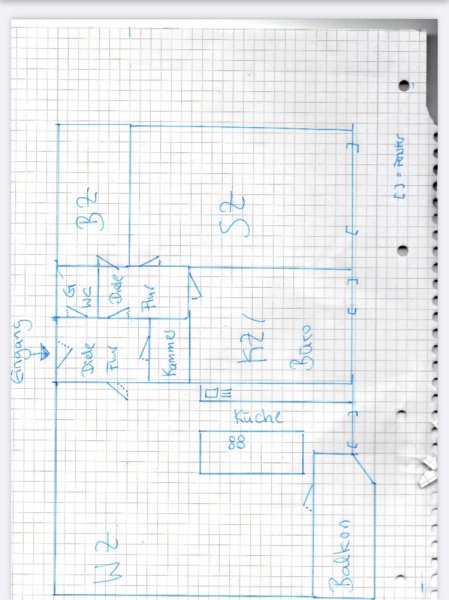 [ ] = Fenster
BZ
SZ
G
WC
Diele
Flur
Eingang
Diele
Flur
Kammer
KZ/
Büro
Küche
WZ
Balkon